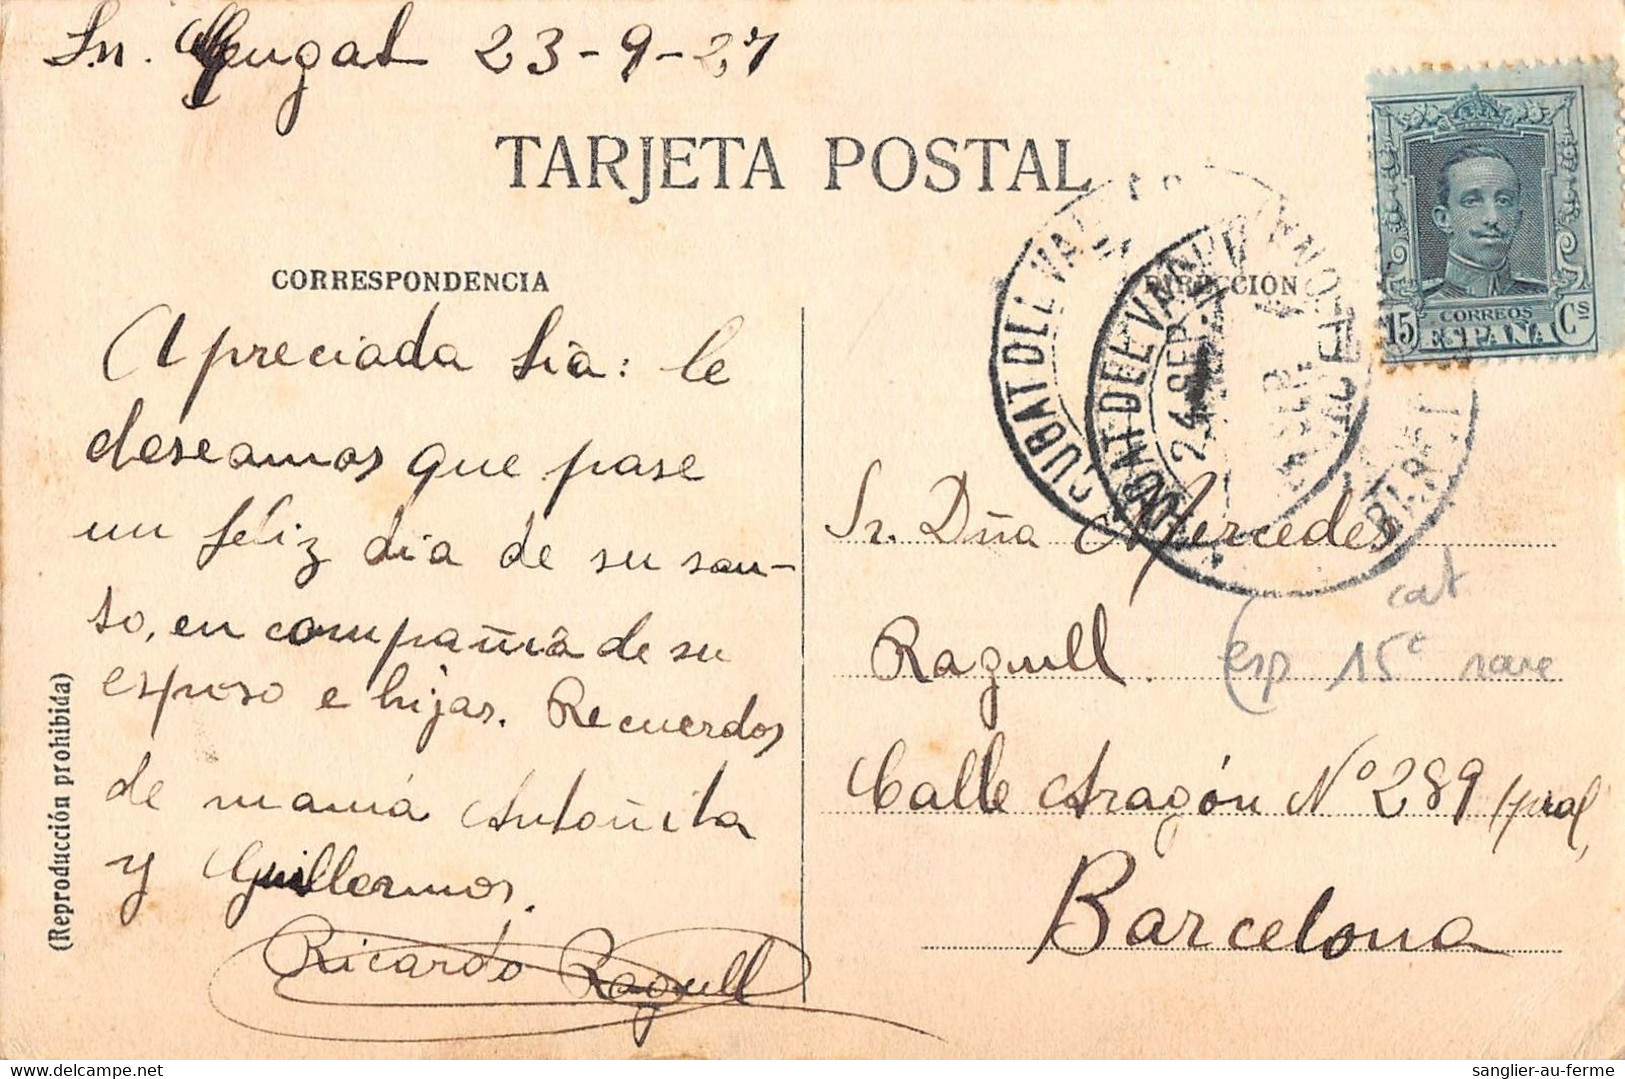 Sn. Cugat 23-9-27
TARJETA POSTAL
CORRESPONDENCIA
DIRECCIÓN
Apreciada tia: le
deseamos que pase
un feliz dia de su san-
to, en compañia de su
esposo e hijas. Recuerdos
de mamá Antoñita
y Guillermos.
Ricardo Ragull
(Reproducción prohibida)
15 CORREOS Cs
ESPAÑA
CUGAT DEL VAL
24 SEP
Sr. Dña Mercedes
Ragull.
Calle Aragón Nº 289 pral,
Barcelona
cat
esp 15€ rare
sanglier-au-ferme